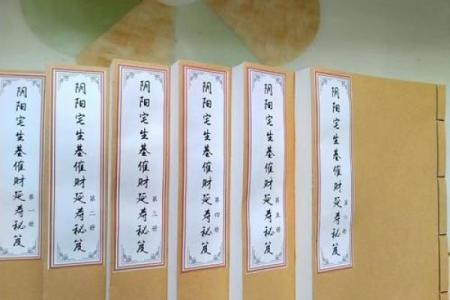 阴阳宅生基催财延寿秘笈
第一册
阴阳宅生基催财延寿秘笈
第二册
阴阳宅生基催财延寿秘笈
第三册
阴阳宅生基催财延寿秘笈
第四册
阴阳宅生基催财延寿秘笈
第五册
阴阳宅生基催财延寿秘笈